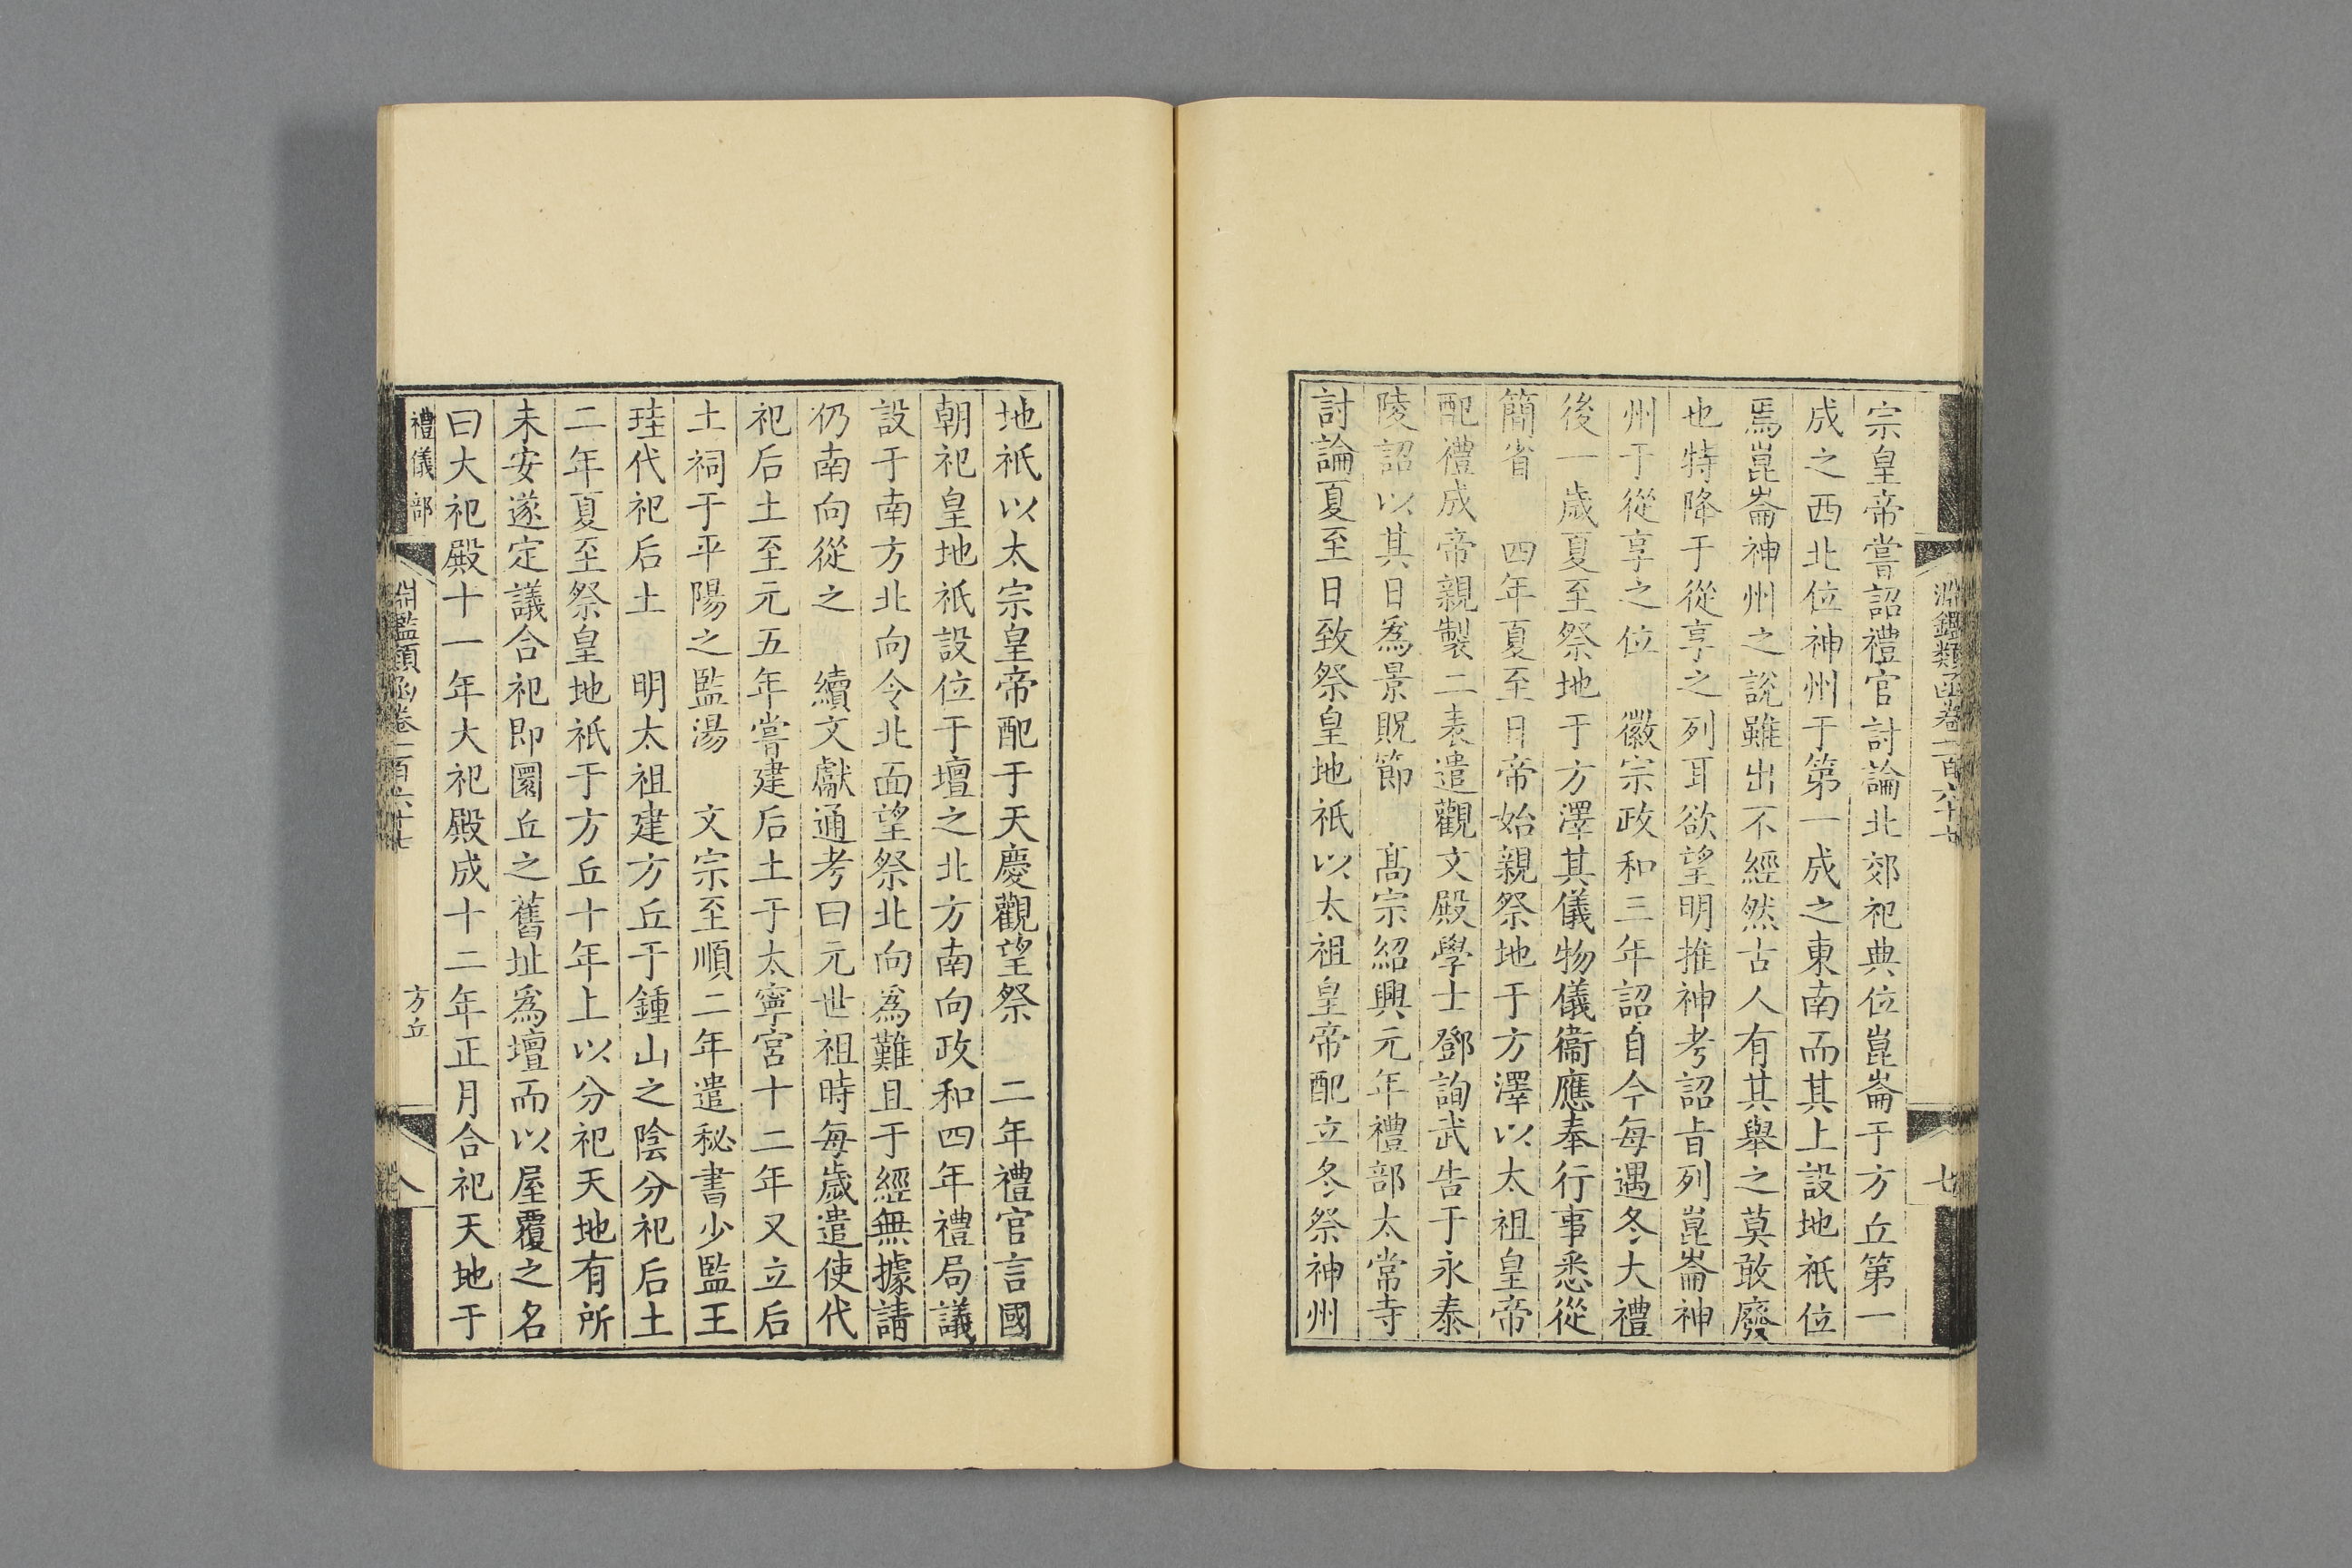 淵鑑類函卷一百六十七
七
宗皇帝嘗詔禮官討論北郊祀典位崑崙于方丘第一
成之西北位神州于第一成之東南而其上設地祇位
焉崑崙神州之說雖出不經然古人有其舉之莫敢廢
也特降于從享之列耳欲望明推神考詔旨列崑崙神
州于從享之位　徽宗政和三年詔自今每遇冬大禮
後一歲夏至祭地于方澤其儀物儀衞應奉行事悉從
簡省　四年夏至日帝始親祭地于方澤以太祖皇帝
配禮成帝親製二表遣觀文殿學士鄧詢武告于永泰
陵詔以其日爲景貺節　高宗紹興元年禮部太常寺
討論夏至日致祭皇地祇以太祖皇帝配立冬祭神州
地祇以太宗皇帝配于天慶觀望祭　二年禮官言國
朝祀皇地祇設位于壇之北方南向政和四年禮局議
設于南方北向令北面望祭北向爲難且于經無據請
仍南向從之　續文獻通考曰元世祖時每歲遣使代
祀后土至元五年嘗建后土于太寧宮十二年又立后
土祠于平陽之監湯　文宗至順二年遣秘書少監王
珪代祀后土　明太祖建方丘于鍾山之陰分祀后土
二年夏至祭皇地祇于方丘十年上以分祀天地有所
未安遂定議合祀即圜丘之舊址爲壇而以屋覆之名
曰大祀殿十一年大祀殿成十二年正月合祀天地于
禮儀部
淵鑑類函卷一百六十七
方丘
八